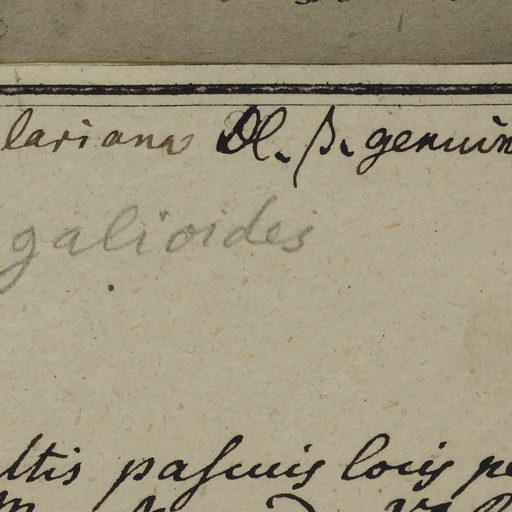 lariana Dl. β. genuin
galioides
ltis pascuis locis pe